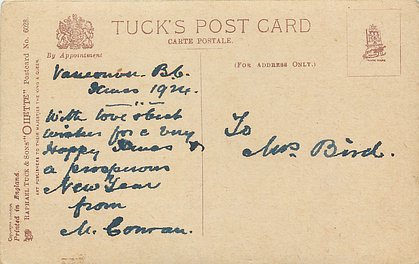 TUCK'S POST CARD
CARTE POSTALE.
By Appointment
(FOR ADDRESS ONLY.)
Vancouver. B.C.
Xmas 1924.
With love & best
wishes for a very
Happy Xmas &
a prosperous
New Year
from
M. Conran.
To
Mrs Bird.
RAPHAEL TUCK & SONS' "OILETTE" Postcard No. 6028.
ART PUBLISHERS TO THEIR MAJESTIES THE KING & QUEEN.
Printed in England.